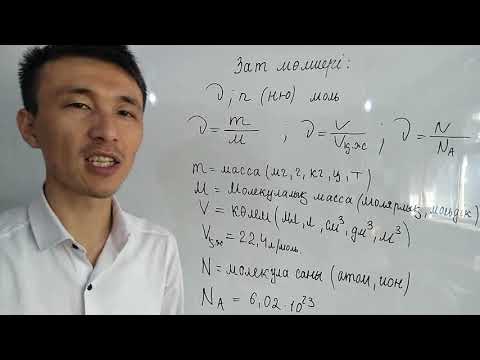 Зат мөлшері:
ν ; n (ню) моль
ν = m/M ; ν = V/Vқ.ж ; ν = N/N_A
m = масса (мг, г, кг, ц, т)
M = Молекулалық масса (молярлық, мольдік)
V = көлем (мл, л, см³, дм³, м³)
Vқ.ж = 22,4 л/моль.
N = молекула саны (атом, ион)
N_A = 6,02·10²³